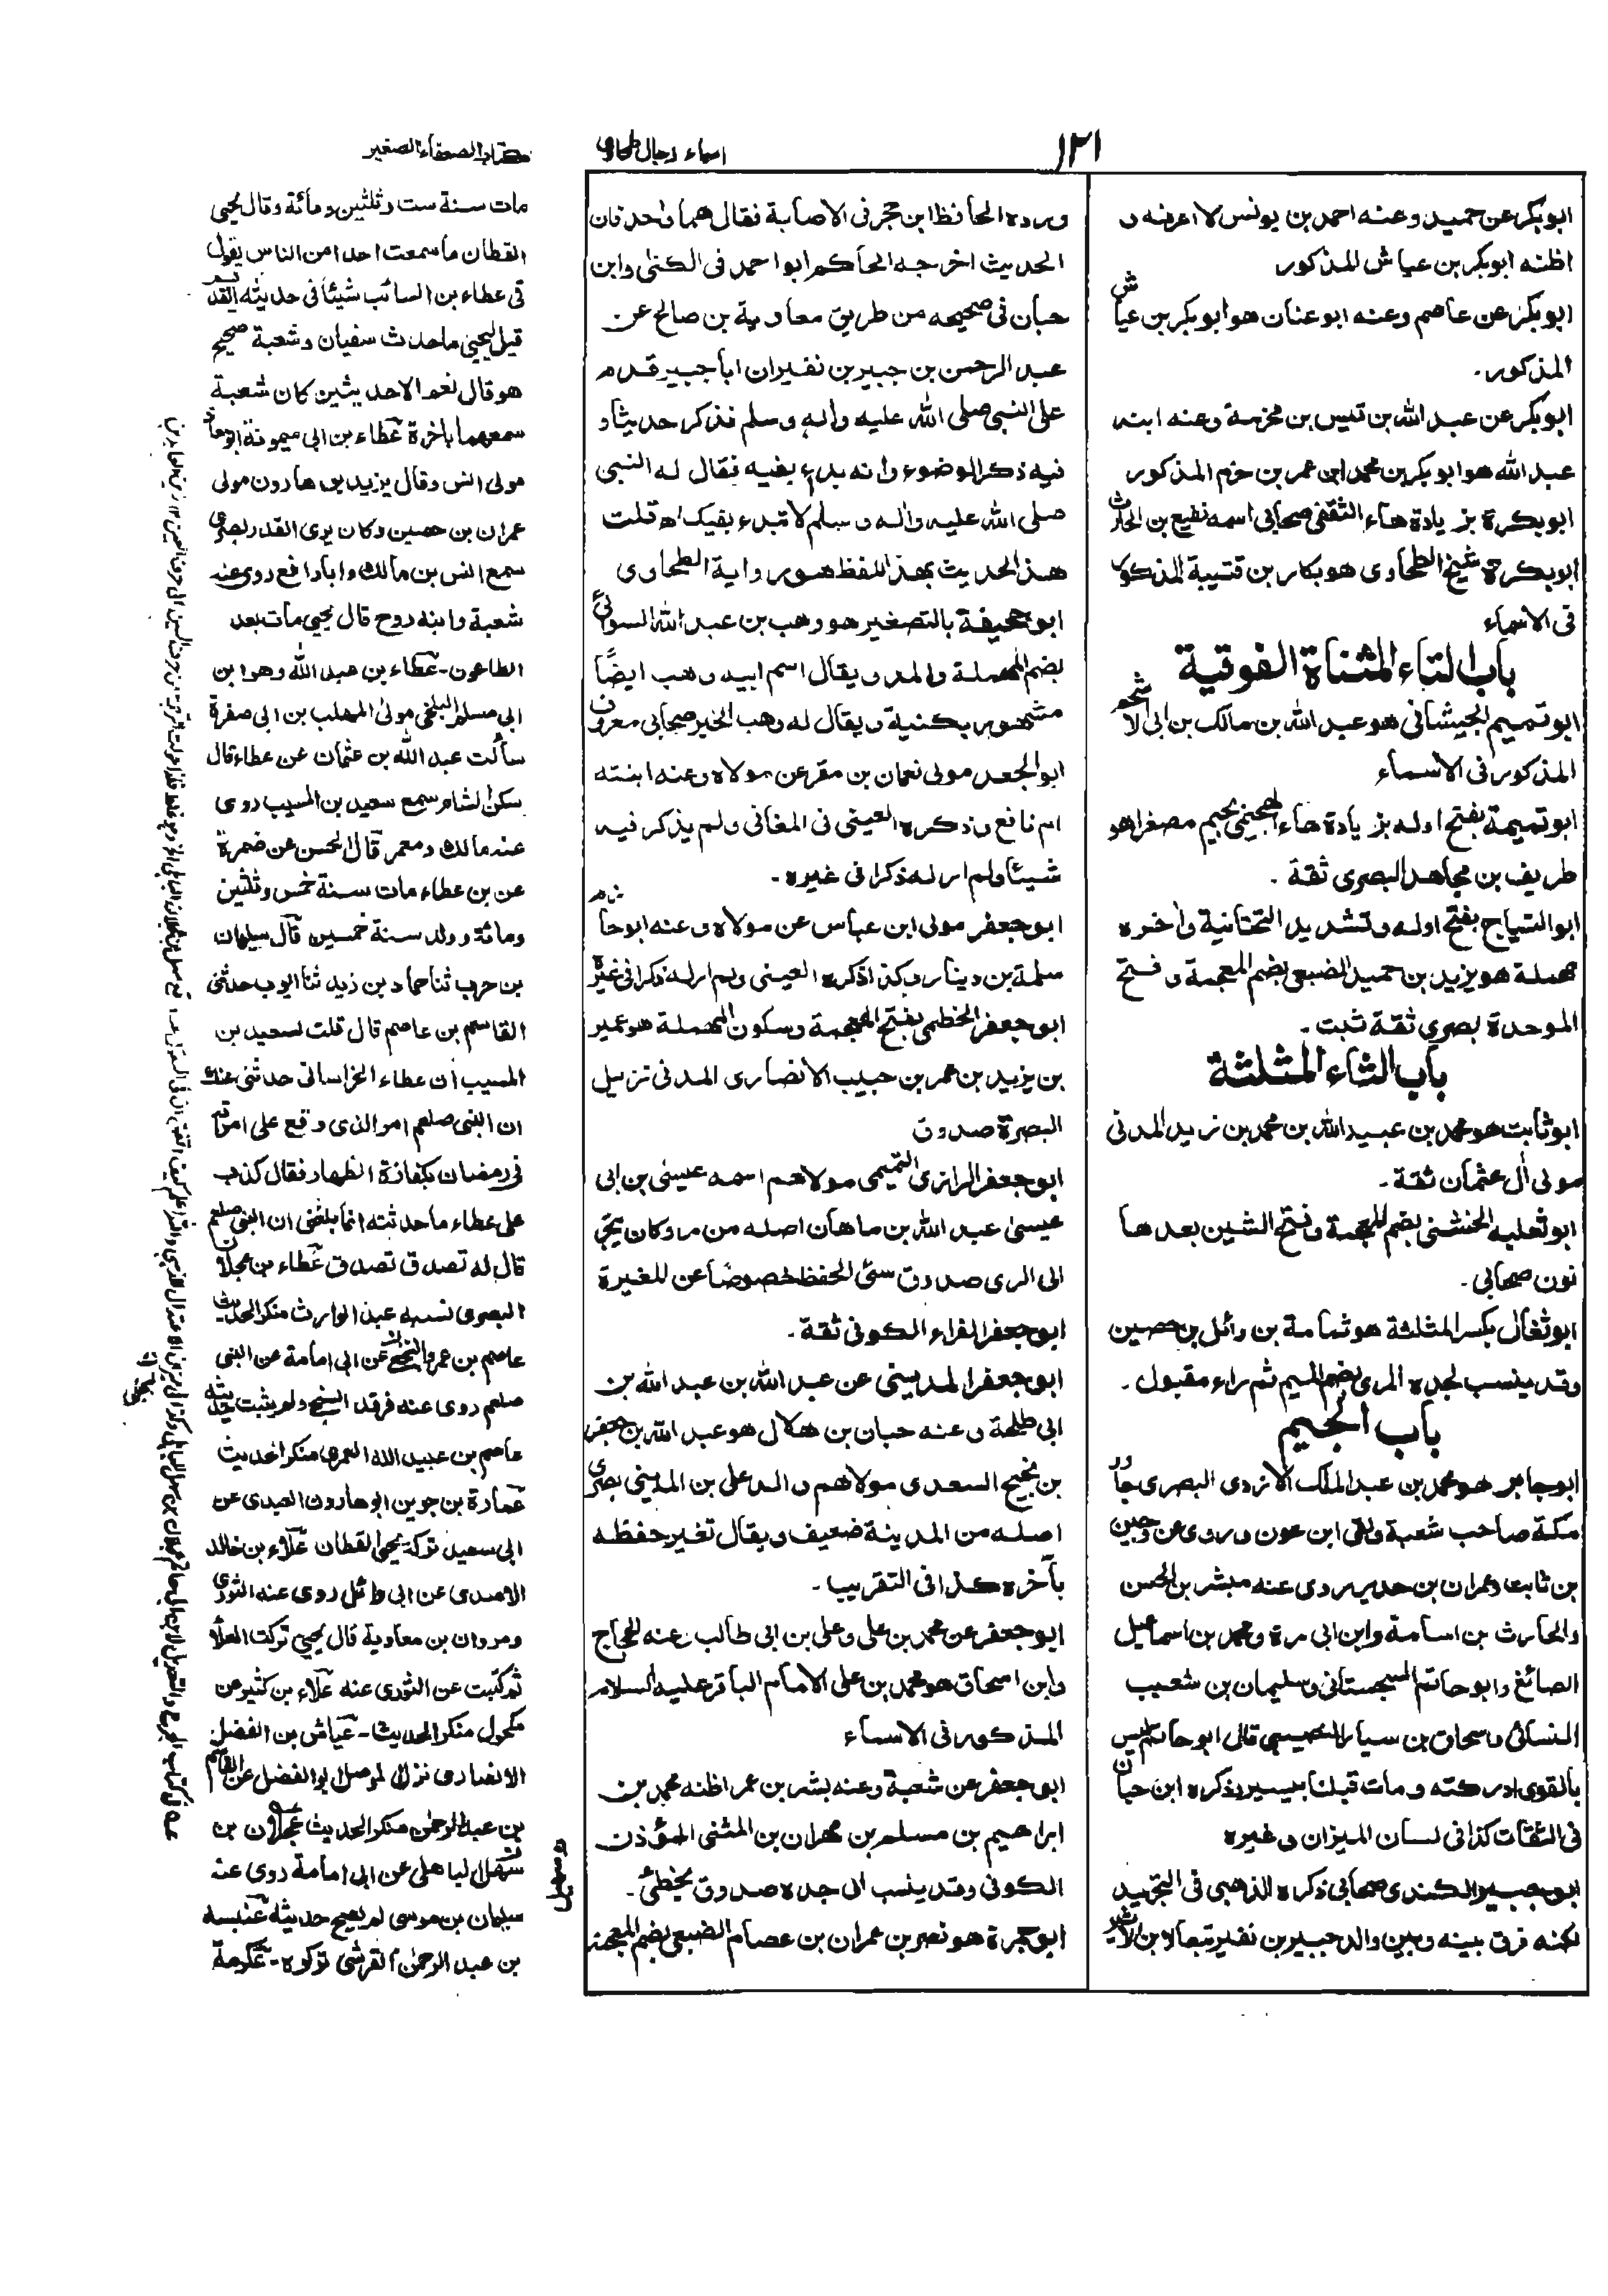 ١٢١
اسماء رجال طحاوى
كتاب الضعفاء الصغير
ابوبكر عن حميد وعنه احمد بن يونس لا اعرفه و
اظنه ابوبكر بن عياش المذكور
ابوبكر عن عاصم وعنه ابو عنان هو ابوبكر بن عياش
المذكور۔
ابوبكر عن عبد الله بن قيس بن مخرمة وعنه ابنه
عبد الله هو ابوبكر بن محمد ابن عمر بن حزم المذكور
ابوبكرة بزيادة هاء الثقفى صحابى اسمه نفيع بن الحارث
ابوبكرة شيخ الطحاوى هو بكار بن قتيبة المذكور
فى الاسماء
باب التاء المثناة الفوقية
ابو تميم الجيشانى هو عبد الله بن مالك بن ابى الاسحم
المذكور فى الاسماء
ابو تميمة بفتح اوله بزيادة هاء الهجيمى بجيم مصغرا هو
طريف بن مجاهد البصرى ثقة ۔
ابو التياح بفتح اوله وتشديد التحتانية واخره
مهملة هو يزيد بن حميد الضبعى بضم المعجمة وفتح
الموحدة بصرى ثقة ثبت ۔
باب الثاء المثلثة
ابو ثابت هو محمد بن عبيد الله بن محمد بن زيد المدنى
مولى آل عثمان ثقة ۔
ابو ثعلبه الخشنى بضم المعجمة وفتح الشين بعدها
نون صحابى ۔
ابو ثفال بكسر المثلثة هو ثمامة بن وائل بن حصين
وقد ينسب لجده المرى بضم الميم ثم راء مقبول ۔
باب الجيم
ابو جابر هو محمد بن عبد الملك الازدى البصرى جاور
مكة صاحب شعبة ولقى ابن عون وروى عن وجبن
بن ثابت وعمران بن حدير روى عنه مبشر بن الحسن
والحارث بن اسامة وابن ابى مرة ومحمد بن اسماعيل
الصائغ وابو حاتم السجستانى وسليمان بن شعيب
النسائى واسحاق بن سيار النصيبى قال ابو حاتم ليس
بالقوى ادركته ومات قبلنا بيسير يذكره ابن حبان
فى الثقات كذا فى لسان الميزان وغيره
ابو جبير الكندى صحابى ذكره الذهبى فى التجريد
لكنه فرق بينه وبين والد جبير بن نفير تبعا لابن الاثير
ورده الحافظ ابن حجر فى الاصابة فقال هما واحد فان
الحديث اخرجه الحاكم ابو احمد فى الكنى وابن
حبان فى صحيحه من طريق معاوية بن صالح عن
عبد الرحمن بن جبير بن نفير ان ابا جبير قدم
على النبى صلى الله عليه واله وسلم فذكر حديثا و
فيه ذكر الوضوء وانه بدء بفيه فقال له النبى
صلى الله عليه واله وسلم لا تبدء بفيك اه قلت
هذ الحديث بهذ اللفظ هو رواية الطحاوى
ابو جحيفة بالتصغير هو وهب بن عبد الله السوائى
بضم المهملة والمد ويقال اسم ابيه وهب ايضًا
مشهور بكنية ويقال له وهب الخير صحابى معروف
ابو الجعد مولى نعمان بن مقرعن مولاه وعنه ابنته
ام نافع وذكره العينى فى المغانى ولم يذكر فيه
شيئا ولم ار له ذكرا فى غيره ۔
ابو جعفر مولى ابن عباس عن مولاه وعنه ابو حازم
سلمة بن دينار وكذا ذكره العينى ولم ار له ذكرا فى غيره
ابو جعفر الخطمى بفتح المعجمة وسكون المهملة هو عمير
بن يزيد بن عمر بن حبيب الانصارى المدنى نزيل
البصرة صدوق
ابو جعفر الرازى التميمى مولاهم اسمه عيسى بن ابى
عيسى عبد الله بن ماهان اصله من مرو كان يتجر
الى الرى صدوق سئ الحفظ خصوصًا عن المغيرة
ابو جعفر الفراء الكوفى ثقة ۔
ابو جعفر المدينى عن عبد الله بن عبد الله بن
ابى طلحة وعنه حبان بن هلال هو عبد الله بن جعفر
بن نجيح السعدى مولاهم والد على بن المدينى بصرى
اصله من المدينة ضعيف ويقال تغير حفظه
بآخره كذا فى التقريب ۔
ابو جعفر عن محمد بن على وعلى بن ابى طالب عنه الحجاج
وابن اسحاق هو محمد بن على الامام الباقر عليه السلام
المذكور فى الاسماء
ابو جعفر عن شعبة وعنه بشر بن عمر اظنه محمد بن
ابراهيم بن مسلم بن مهران بن المثنى المؤذن
الكوفى وقد ينسب الى جده صدوق يخطئ ۔
ابو جمرة هو نصر بن عمران بن عصام الضبعى بضم المعجمة
مات سنة ست وثلثين ومائة وقال يحيى
القطان ما سمعت احدا من الناس يقول
فى عطاء بن السائب شيئا فى حديثه القديم
قيل ليحيى ماحدث سفيان وشعبة صحيح
هو قال نعم الا حديثين كان شعبة
سمعهما باخرة عطاء بن ابى ميمونة ابو معاذ
مولى انس وقال يزيد بن هارون مولى
عمران بن حصين وكان يرى القدر بصرى
سمع انس بن مالك وابا رافع روى عنه
شعبة وابنه روح قال يحيى مات بعد
الطاعون۔ عطاء بن عبد الله وهو ابن
ابى مسلم البلخى مولى المهلب بن ابى صفرة
سألت عبد الله بن عثمان عن عطاء قال
سكن الشام سمع سعيد بن المسيب روى
عنه مالك ومعمر قال الحسن عن ضمرة
عن بن عطاء مات سنة خمس وثلثين
ومائة وولد سنة خمسين قال سليمان
بن حرب ثنا حماد بن زيد ثنا ايوب حدثنى
القاسم بن عاصم قال قلت لسعيد بن
المسيب ان عطاء الخراسانى حدثنى عنك
ان النبى صلعم امر الذى وقع على امرأته
فى رمضان بكفارة الظهار فقال كذب
على عطاء ما حدثته انما بلغنى ان النبى صلعم
قال له تصدق تصدق عطاء بن عجلان
البصرى نسبه عبد الوارث منكر الحديث۔
عاصم بن عمرو البجلى عن ابى امامة عن النبى
صلعم روى عنه فرقد السبخى ولم يثبت حديثه
عاصم بن عبيد الله العمرى منكر الحديث
عمارة بن جوين ابو هارون العبدى عن
ابى سعيد تركه يحيى القطان علاء بن خالد
الاسدى عن ابى وائل روى عنه الثورى
ومروان بن معاوية قال يحيى تركت العلاء
ثم كتبت عن الثورى عنه علاء بن كثير عن
مكحول منكر الحديث۔ عياش بن الفضل
الانصارى نزل الموصل ابو الفضل عن القاسم
بن عبد الرحمن منكر الحديث عجلان بن
سهل الباهلى عن ابى امامة روى عنه
سليمان بن موسى لم يصح حديثه عنبسة
بن عبد الرحمن القرشى تركوه۔ عكرمة